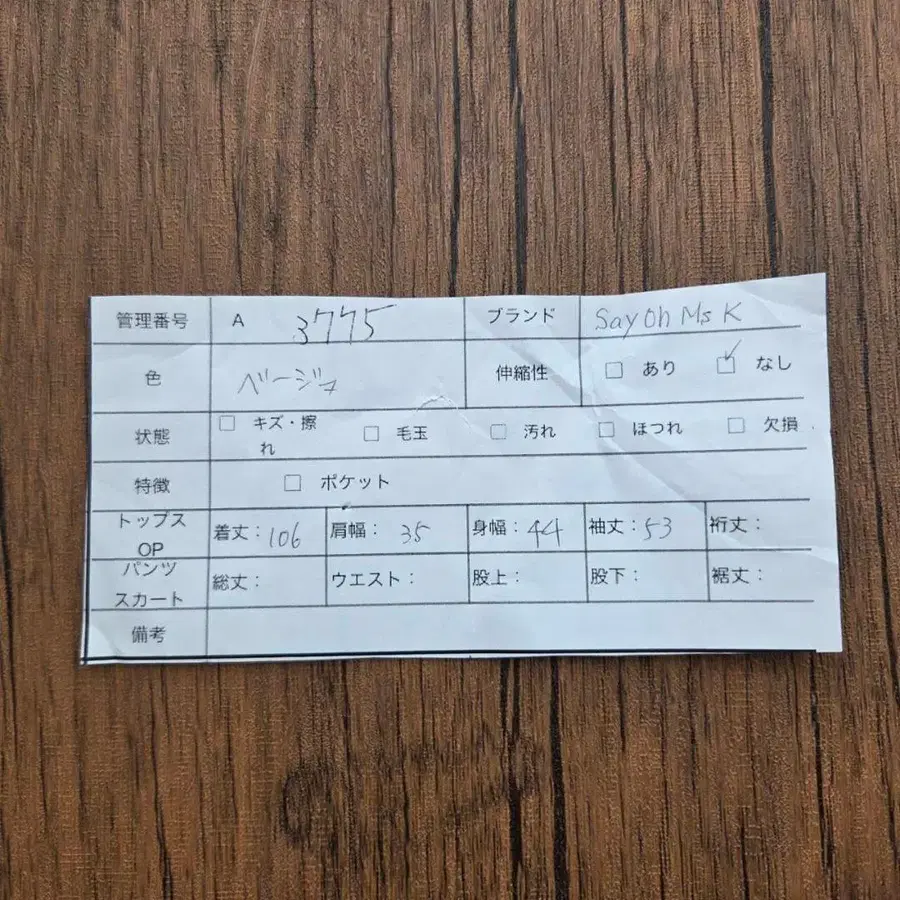 管理番号 A 3775 ブランド Say Oh Ms K
色 ベージュ 伸縮性 □ あり ☑ なし
状態 □ キズ・擦れ □ 毛玉 □ 汚れ □ ほつれ □ 欠損
特徴 □ ポケット
トップス OP 着丈：106 肩幅：35 身幅：44 袖丈：53 裄丈：
パンツ スカート 総丈： ウエスト： 股上： 股下： 裾丈：
備考